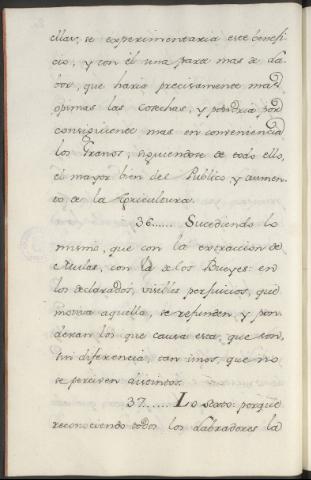 ellas, se experimentaria este benefi
cio, y con él una parte mas de la
bor, que haria precisamente mas
opimas las Cosechas, y pondria por
consiguiente mas en conveniencia
los Granos; siguiendose de todo ello,
el mayor bien del Publico y aumen-
to de la Agricultura.
36...... Sucediendo lo
mismo, que con la extraccion de
Mulas, con la de los Bueyes: en
los declarados, visibles perjuicios, que
motiva aquella, se refunden y pon
deran los que causa esta, que son,
sin diferencia, tan unos, que no
se perciven distintos.
37....... Lo sexto: porque
reconociendo todos los Labradores la